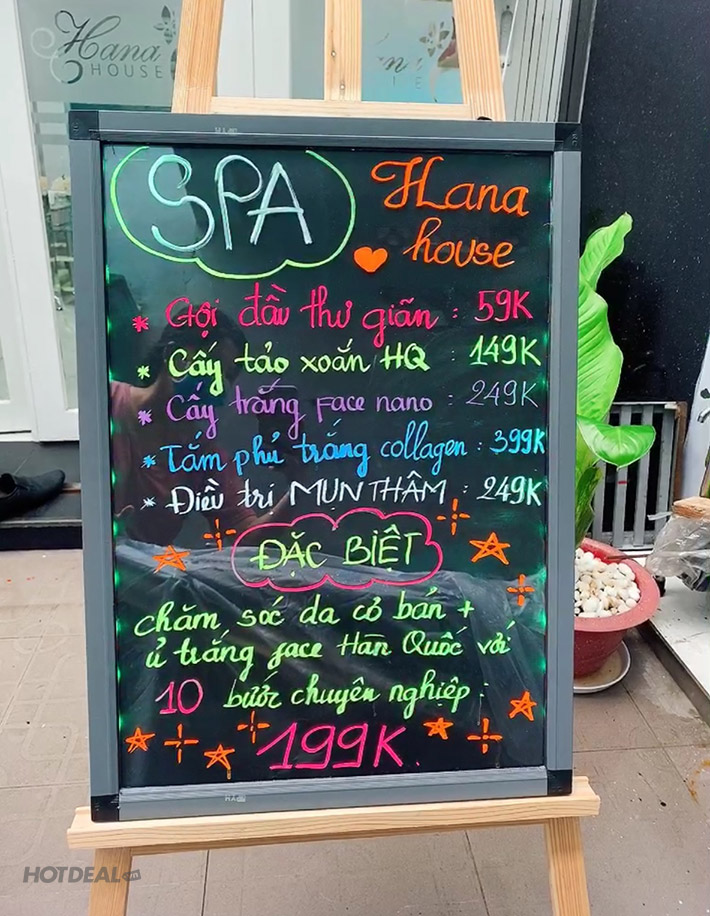 Hana
HOUSE
SPA
Hana
house
* Gội đầu thư giãn : 59K
* Cấy tảo xoắn HQ : 149K
* Cấy trắng face nano : 249K
* Tắm phủ trắng collagen : 399K
* Điều trị MỤN THÂM : 249K
ĐẶC BIỆT
chăm sóc da cỏ bản +
ủ trắng face Hàn Quốc với
10 bước chuyên nghiệp :
199K.
HOTDEAL.vn